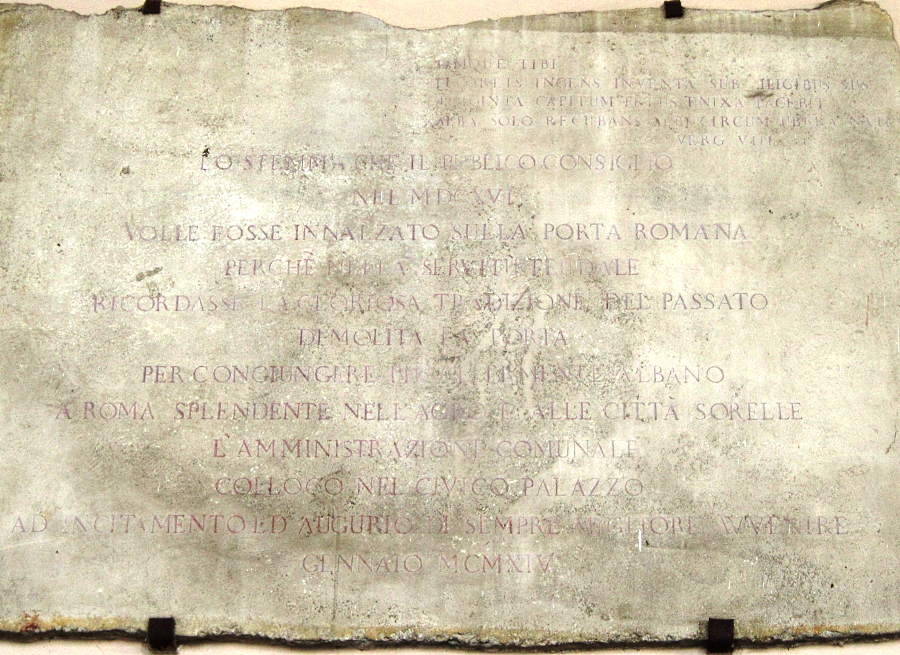 TIBI
INGENS INVENTA SUB ILICIBUS SUS
CAPITUM
ALBA SOLO RECUBANS ALBI CIRCUM UBERA NATI
VERG VIII
LO STEMMA CHE IL PUBLICO CONSIGLIO
NEL
VOLLE FOSSE INNALZATO SULLA PORTA ROMANA
PERCHÈ NELLA SERVITÙ FEUDALE
RICORDASSE LA GLORIOSA TRADIZIONE DEL PASSATO
DEMOLITA LA PORTA
PER CONGIUNGERE ALBANO
A ROMA SPLENDENTE NELL'AGRO E ALLE CITTÀ SORELLE
L'AMMINISTRAZIONE COMUNALE
COLLOCÒ NEL CIVICO PALAZZO
AD INCITAMENTO ED AUGURIO DI SEMPRE MIGLIORE AVVENIRE
GENNAIO MCMXIV